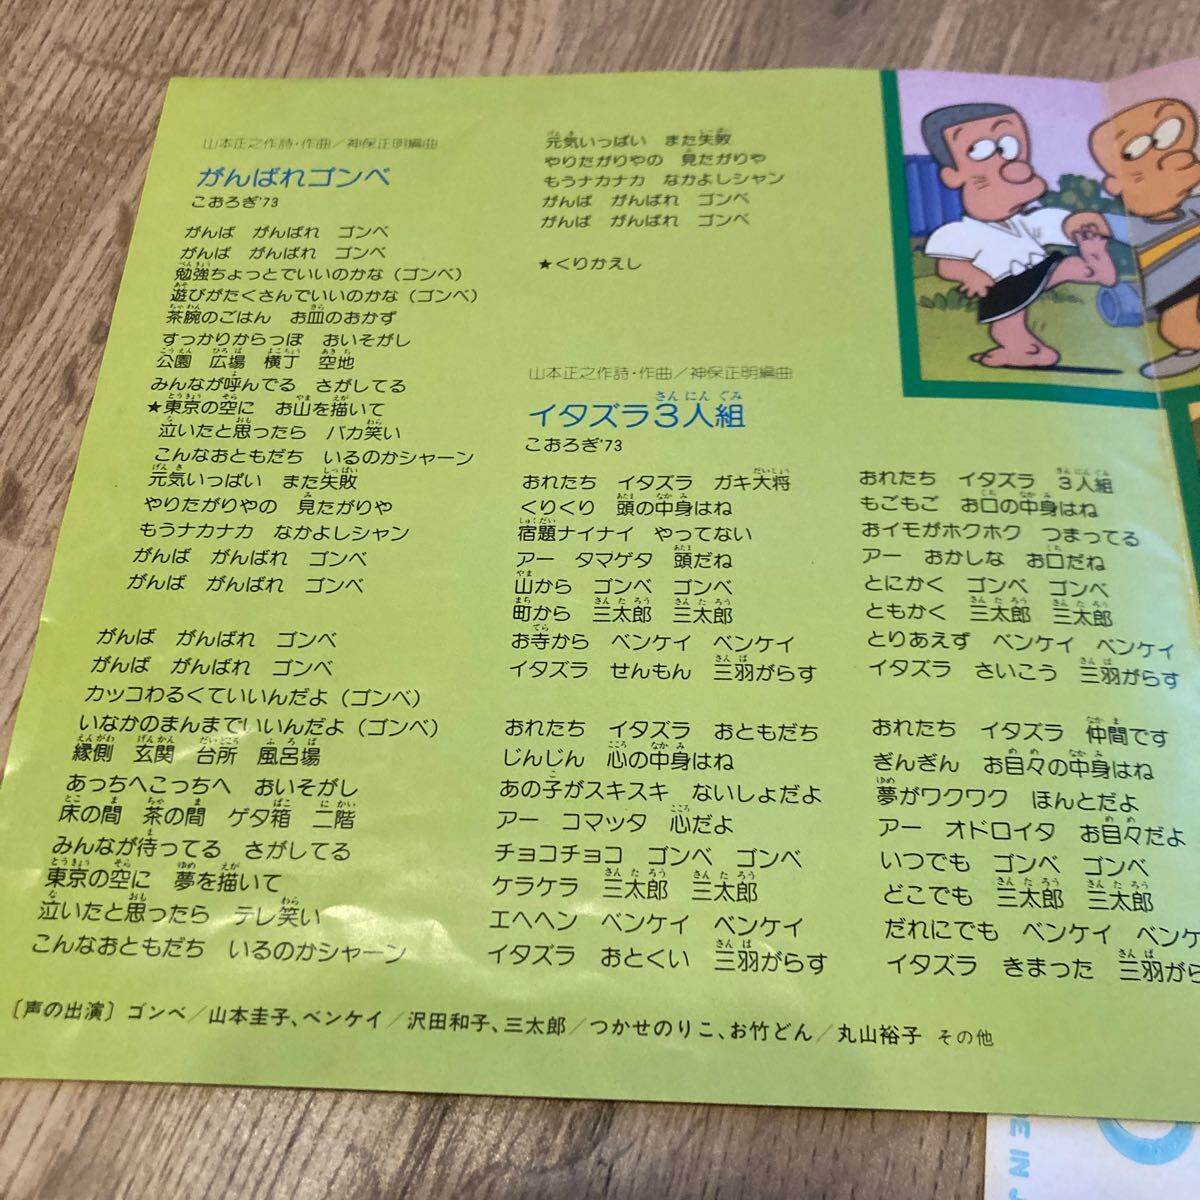 山本正之作詩・作曲／神保正明編曲
がんばれゴンベ
こおろぎ'73
がんば がんばれ ゴンベ
がんば がんばれ ゴンベ
勉強ちょっとでいいのかな（ゴンベ）
遊びがたくさんでいいのかな（ゴンベ）
茶腕のごはん お皿のおかず
すっかりからっぽ おいそがし
公園 広場 横丁 空地
みんなが呼んでる さがしてる
★東京の空に お山を描いて
泣いたと思ったら バカ笑い
こんなおともだち いるのかシャーン
元気いっぱい また失敗
やりたがりやの 見たがりや
もうナカナカ なかよしシャン
がんば がんばれ ゴンベ
がんば がんばれ ゴンベ
がんば がんばれ ゴンベ
がんば がんばれ ゴンベ
カッコわるくていいんだよ（ゴンベ）
いなかのまんまでいいんだよ（ゴンベ）
縁側 玄関 台所 風呂場
あっちへこっちへ おいそがし
床の間 茶の間 ゲタ箱 二階
みんなが待ってる さがしてる
東京の空に 夢を描いて
泣いたと思ったら テレ笑い
こんなおともだち いるのかシャーン
元気いっぱい また失敗
やりたがりやの 見たがりや
もうナカナカ なかよしシャン
がんば がんばれ ゴンベ
がんば がんばれ ゴンベ
★くりかえし
山本正之作詩・作曲／神保正明編曲
イタズラ3人組
こおろぎ'73
おれたち イタズラ ガキ大将
くりくり 頭の中身はね
宿題ナイナイ やってない
アー タマゲタ 頭だね
山から ゴンベ ゴンベ
町から 三太郎 三太郎
お寺から ベンケイ ベンケイ
イタズラ せんもん 三羽がらす
おれたち イタズラ おともだち
じんじん 心の中身はね
あの子がスキスキ ないしょだよ
アー コマッタ 心だよ
チョコチョコ ゴンベ ゴンベ
ケラケラ 三太郎 三太郎
エヘヘン ベンケイ ベンケイ
イタズラ おとくい 三羽がらす
おれたち イタズラ 3人組
もごもご お口の中身はね
おイモがホクホク つまってる
アー おかしな お口だね
とにかく ゴンベ ゴンベ
ともかく 三太郎 三太郎
とりあえず ベンケイ ベンケイ
イタズラ さいこう 三羽がらす
おれたち イタズラ 仲間です
ぎんぎん お目々の中身はね
夢がワクワク ほんとだよ
アー オドロイタ お目々だよ
いつでも ゴンベ ゴンベ
どこでも 三太郎 三太郎
だれにでも ベンケイ ベンケ
イタズラ きまった 三羽がら
〔声の出演〕ゴンベ／山本圭子、ベンケイ／沢田和子、三太郎／つかせのりこ、お竹どん／丸山裕子 その他